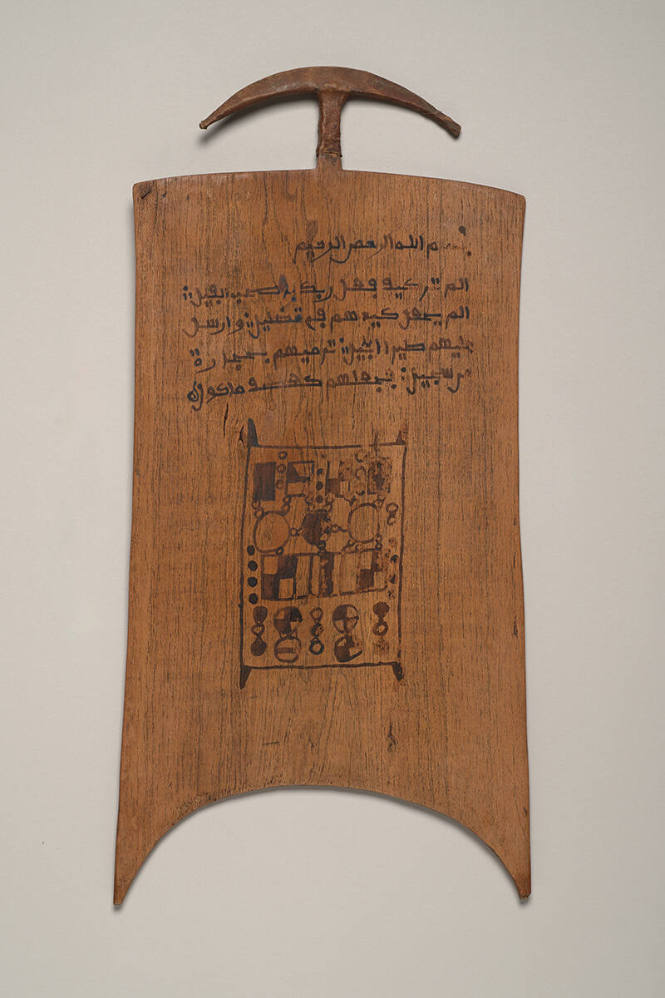 بسم الله الرحمن الرحيم
الم تر كيف فعل ربك باصحب الفيل
الم يجعل كيدهم في تضليل وارسل
عليهم طيرا ابابيل ترميهم بحجارة
من سجيل فجعلهم كعصف ماكول